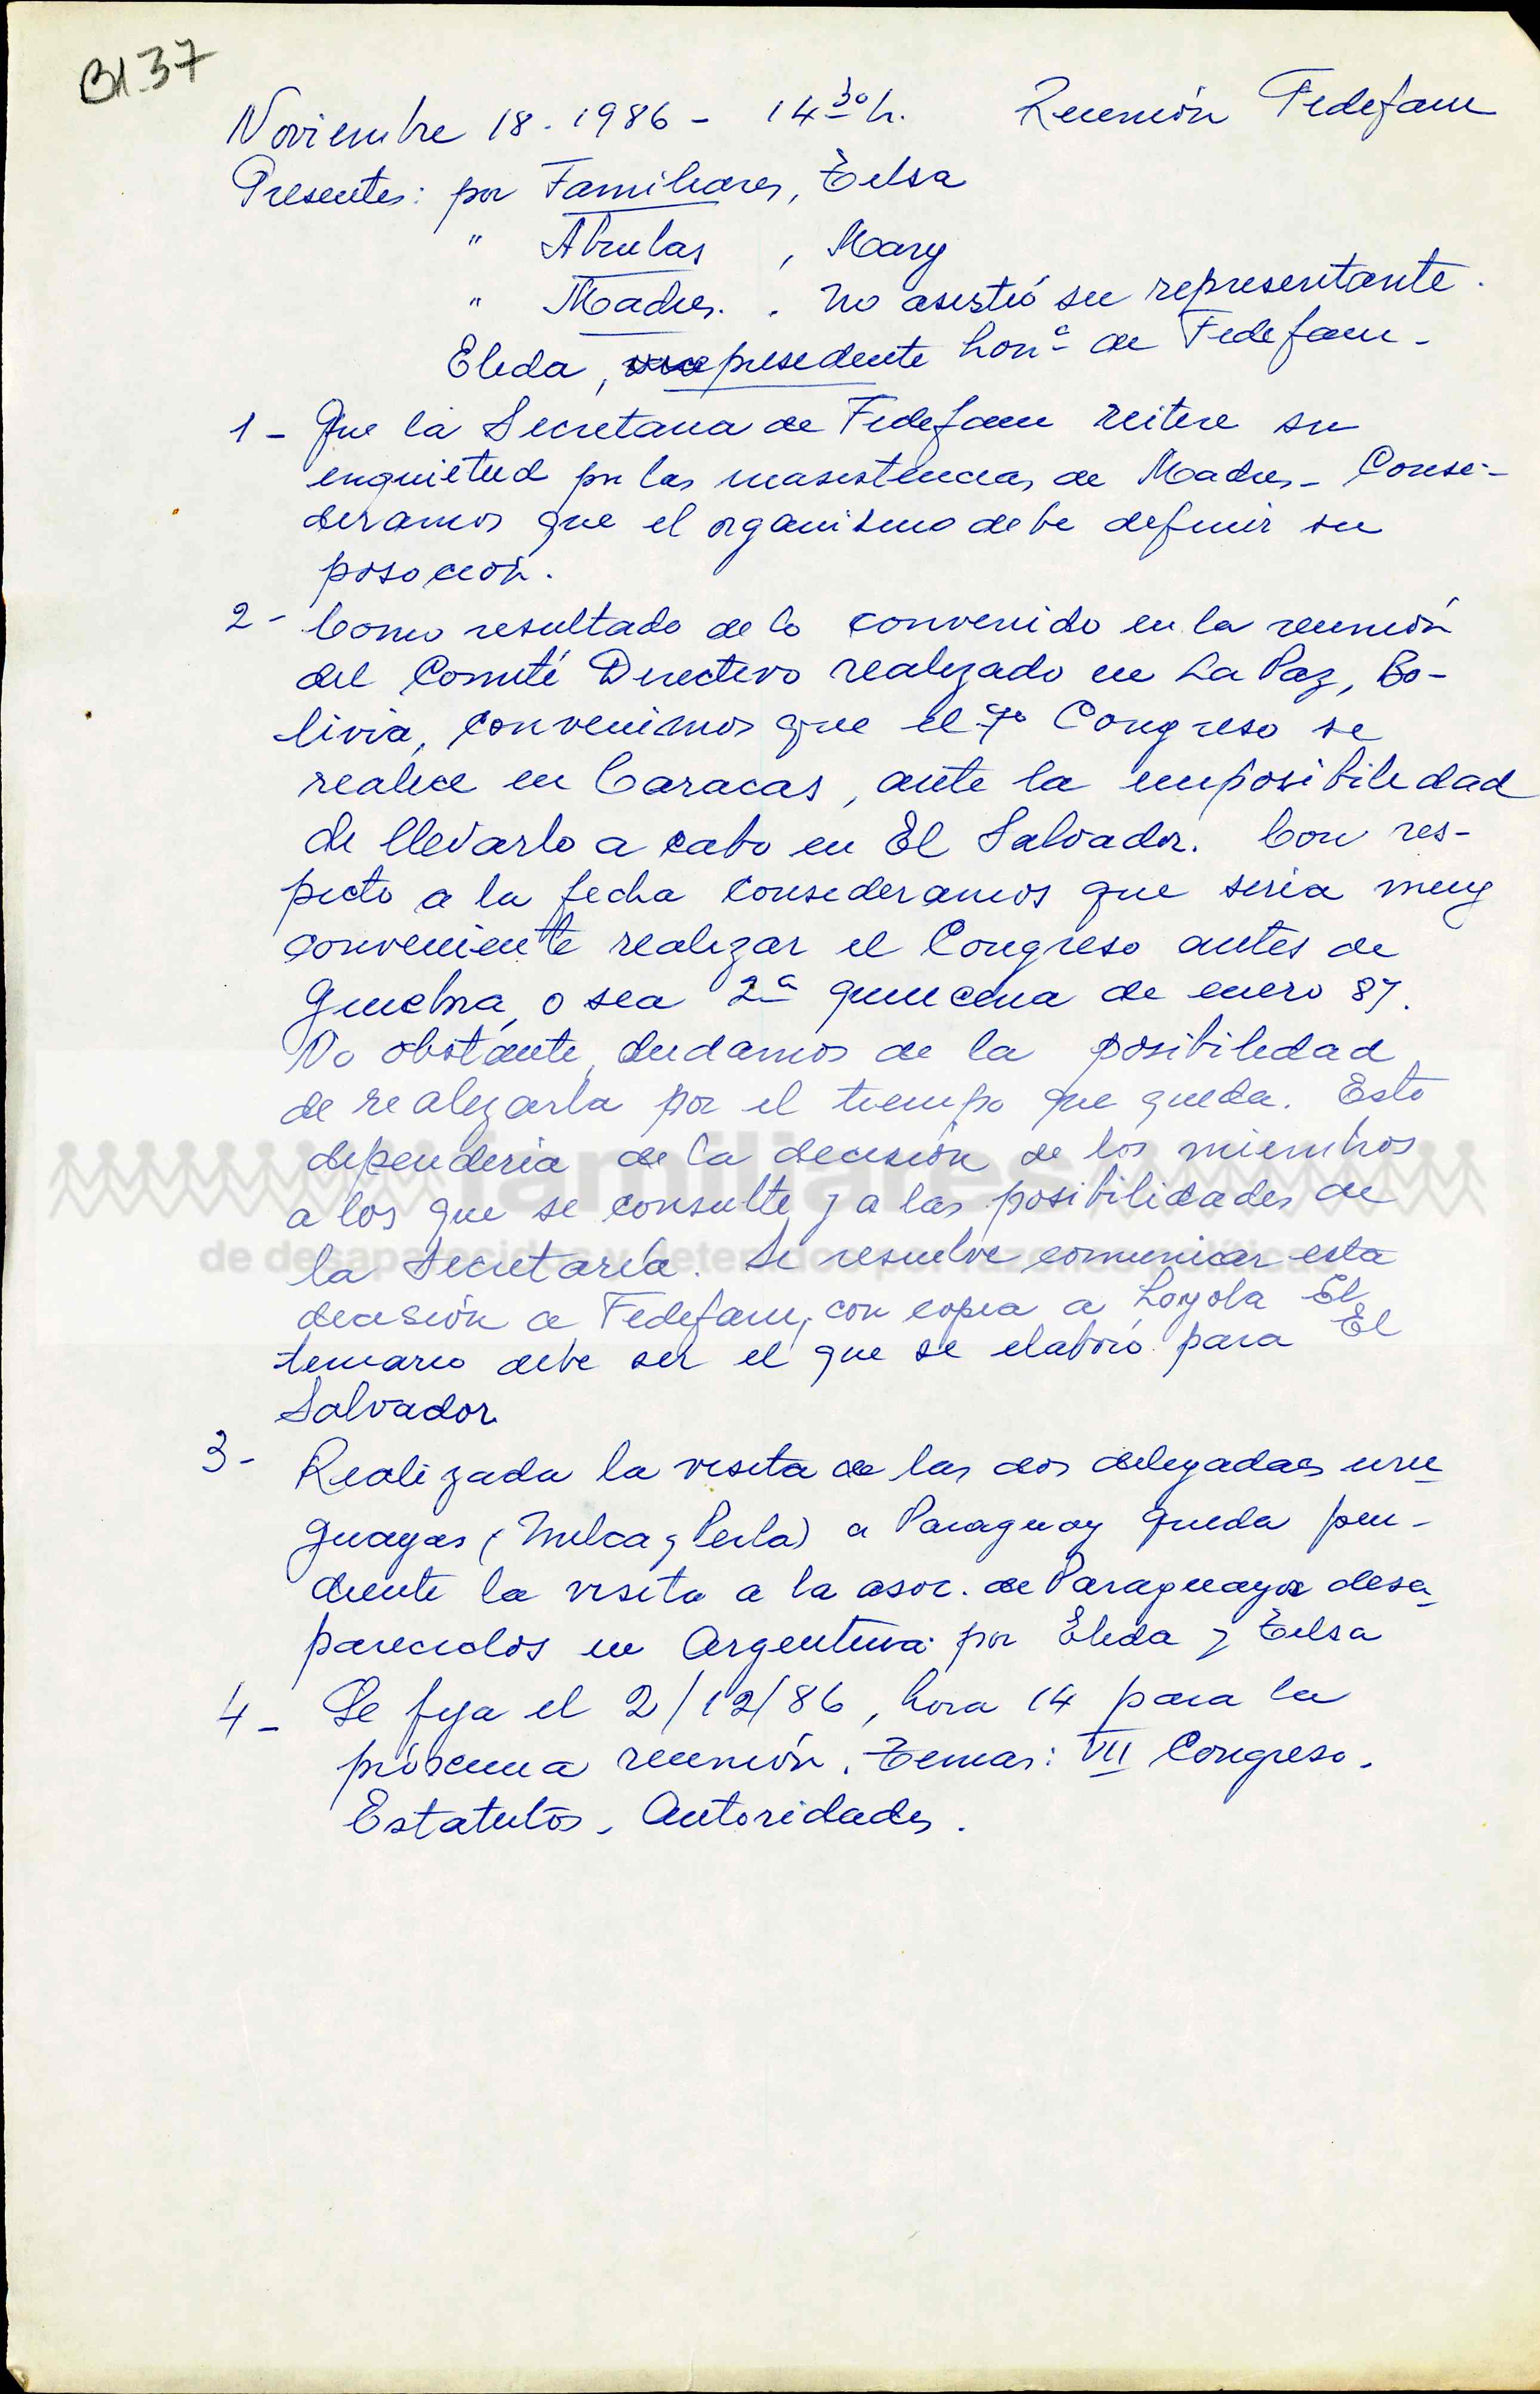 B1.37
Noviembre 18. 1986 - 14 30 h. Reunión Fedefam
Presentes: por Familiares, Tilsa
" Abuelas , Mary
" Madres. . No asistió su representante.
Elida, presidente hon.ª de Fedefam.
1 - Que la Secretaria de Fedefam reitere su
inquietud por las inasistencias de Madres - Consi-
deramos que el organismo debe definir su
posoción.
2 - Como resultado de lo convenido en la reunión
del Comité Directivo realizado en La Paz, Bo-
livia, convenimos que el 7º Congreso se
realice en Caracas, ante la imposibilidad
de llevarlo a cabo en El Salvador. Con res-
pecto a la fecha consideramos que sería muy
conveniente realizar el Congreso antes de
Ginebra, o sea 2ª quincena de enero 87.
No obstante, dudamos de la posibilidad
de realizarla por el tiempo que queda. Esto
dependería de la decisión de los miembros
familiares
a los que se consulte y a las posibilidades de
de desaparecidos y detenidos por razones políticas
la Secretaría. Se resuelve comunicar esta
decisión a Fedefam, con copia a Loyola El
temario debe ser el que se elaboró para El
Salvador.
3 - Realizada la visita de las dos delegadas uru
guayas (Milca y Perla) a Paraguay queda pen-
diente la visita a la asoc. de Paraguayos desa
parecidos en Argentina por Elida y Tilsa
4 - Se fija el 2/12/86, hora 14 para la
próxima reunión. Temas: VII Congreso.
Estatutos - Autoridades.